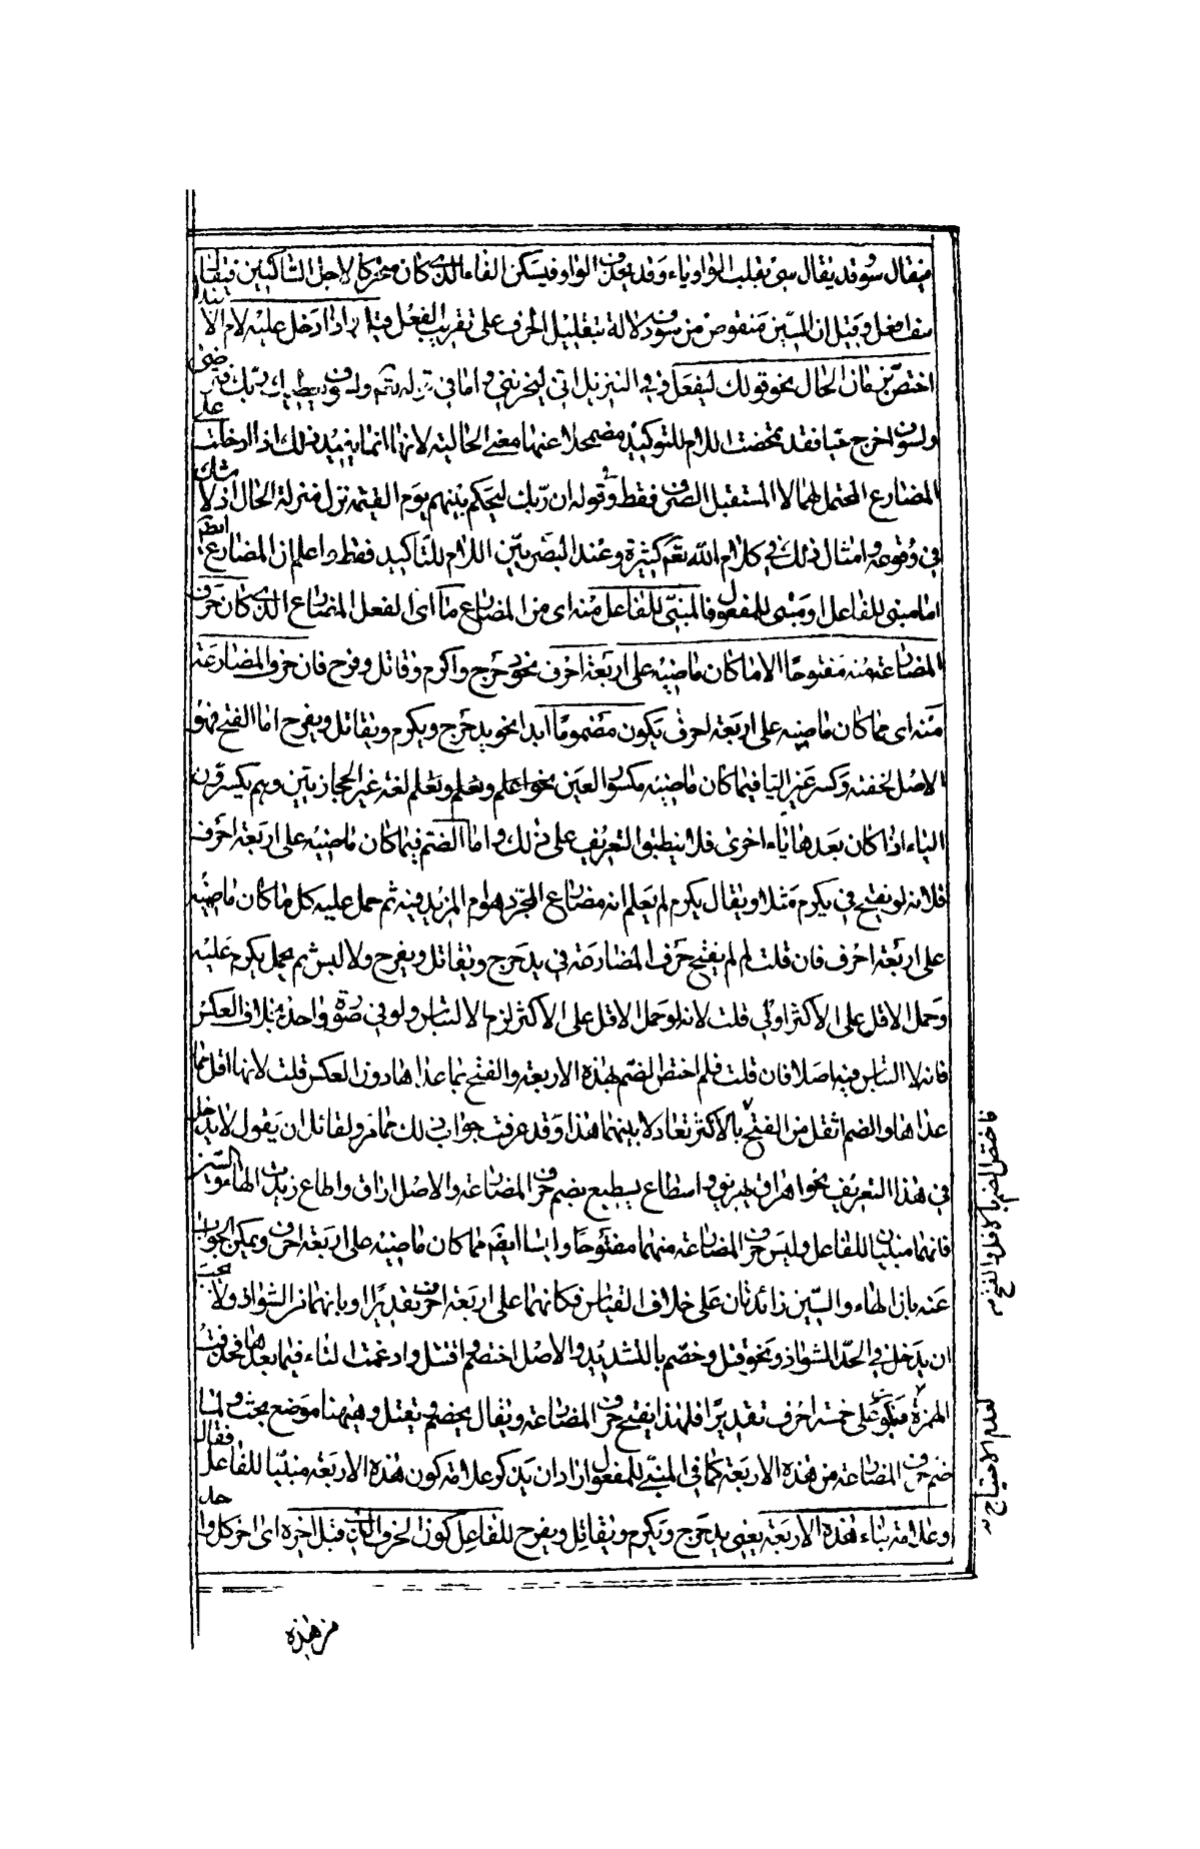 فيقال سو وقد يقال سى بقلب الواو ياء وقد يحذف الواو فيسكن الفاء الذى كان متحركا لاجل الساكنين فيقال
سف افعل وقيل ان السين منقوص من سوف دلالة بتقليل الحرف على تقريب الفعل فاذا ادخل عليه لام الابتداء
اختص بزمان الحال نحو قولك ليفعل وفى التنزيل انى ليحزننى واما فى قوله تعم ولسوف يعطيك ربك فترضى
ولسوف اخرج حيا فقد تمحضت اللام للتوكيد مضمحلا عنها معنى الحالية لانها انما يفيد ذلك اذا ادخلت على
المضارع المحتمل لهما لا المستقبل الصرف فقط وفى قوله ان ربك ليحكم بينهم يوم القيمة نزل منزلة الحال اذ لا شك
فى وقوعه وامثال ذلك فى كلام الله تعم كثيرة وعند البصريين اللام للتاكيد فقط واعلم ان المضارع ايضا
اما مبنى للفاعل او مبنى للمفعول فالمبنى للفاعل منه اى من المضارع ما اى الفعل المضارع الذى كان حرف
المضارعة منه مفتوحا الا ما كان ماضيه على اربعة احرف نحو دحرج واكرم وقاتل وفرح فان حرف المضارعة
منه اى مما كان ماضيه على اربعة احرف يكون مضموما ابدا نحو يدحرج ويكرم ويقاتل ويفرح اما الفتح فهو
الاصل لخفته وكسر غير الياء فيما كان ماضيه مكسور العين نحو اعلم ونعلم وتعلم لغة غير الحجازيين وهم يكسرون
الياء اذا كان بعدها ياء اخرى فلا ينطبق التعريف على ذلك واما الضم فيما كان ماضيه على اربعة احرف
فلانه لو يفتح فى يكرم مثلا ويقال يكرم لم يعلم انه مضارع المجرد هو ام المزيد فيه ثم حمل عليه كل ما كان ماضيه
على اربعة احرف فان قلت لم لم يفتح حرف المضارعة فى يدحرج ويقاتل ويفرح ولا لبس ثم يحمل يكرم عليه
وحمل الاقل على الاكثر اولى قلت لانه لو حمل الاقل على الاكثر لزم الالتباس ولو فى صورة واحدة بخلاف العكس
فانه لا التباس فيه اصلا فان قلت فلم اختص الضم بهذه الاربعة والفتح بما عداها دون العكس قلت لانها اقل مما
عداها والضم اثقل من الفتح بالاكثر تعادلا بينهما هذا وقد عرفت جواب ذلك مما مر ولقائل ان يقول لا يدخل
فى هذا التعريف نحو اهراق يهريق واسطاع يسطيع بضم حرف المضارعة والاصل اراق واطاع زيدت الهاء والسين
فانهما مبنيان للفاعل وليس حرف المضارعة منهما مفتوحا وليسا ايضا مما كان ماضيه على اربعة احرف ويمكن الجواب
عنه بان الهاء والسين زائدتان على خلاف القياس فكانهما على اربعة احرف تقديرا او بانهما من الشواذ ولا يجب
ان يدخل فى الحد الشواذ ونحو قتل وخصم بالتشديد والاصل اختصم واقتتل وادغمت التاء فيما بعدها فحذفت
الهمزة فيكون على خمسة احرف تقديرا فلهذا يفتح حرف المضارعة ويقال يخصم ويقتل وههنا موضع بحث ولما
ضم حرف المضارعة من هذه الاربعة كما فى المبنى للمفعول اراد ان يذكر علامة كون هذه الاربعة مبنيا للفاعل فقال
وعلامة بناء هذه الاربعة يعنى يدحرج ويكرم ويقاتل ويفرح للفاعل كون الحرف الذى قبل اخره اى اخر كل واحد
من هذه
فاختص الضم بالاقل والفتح
لعدم الاحتياج